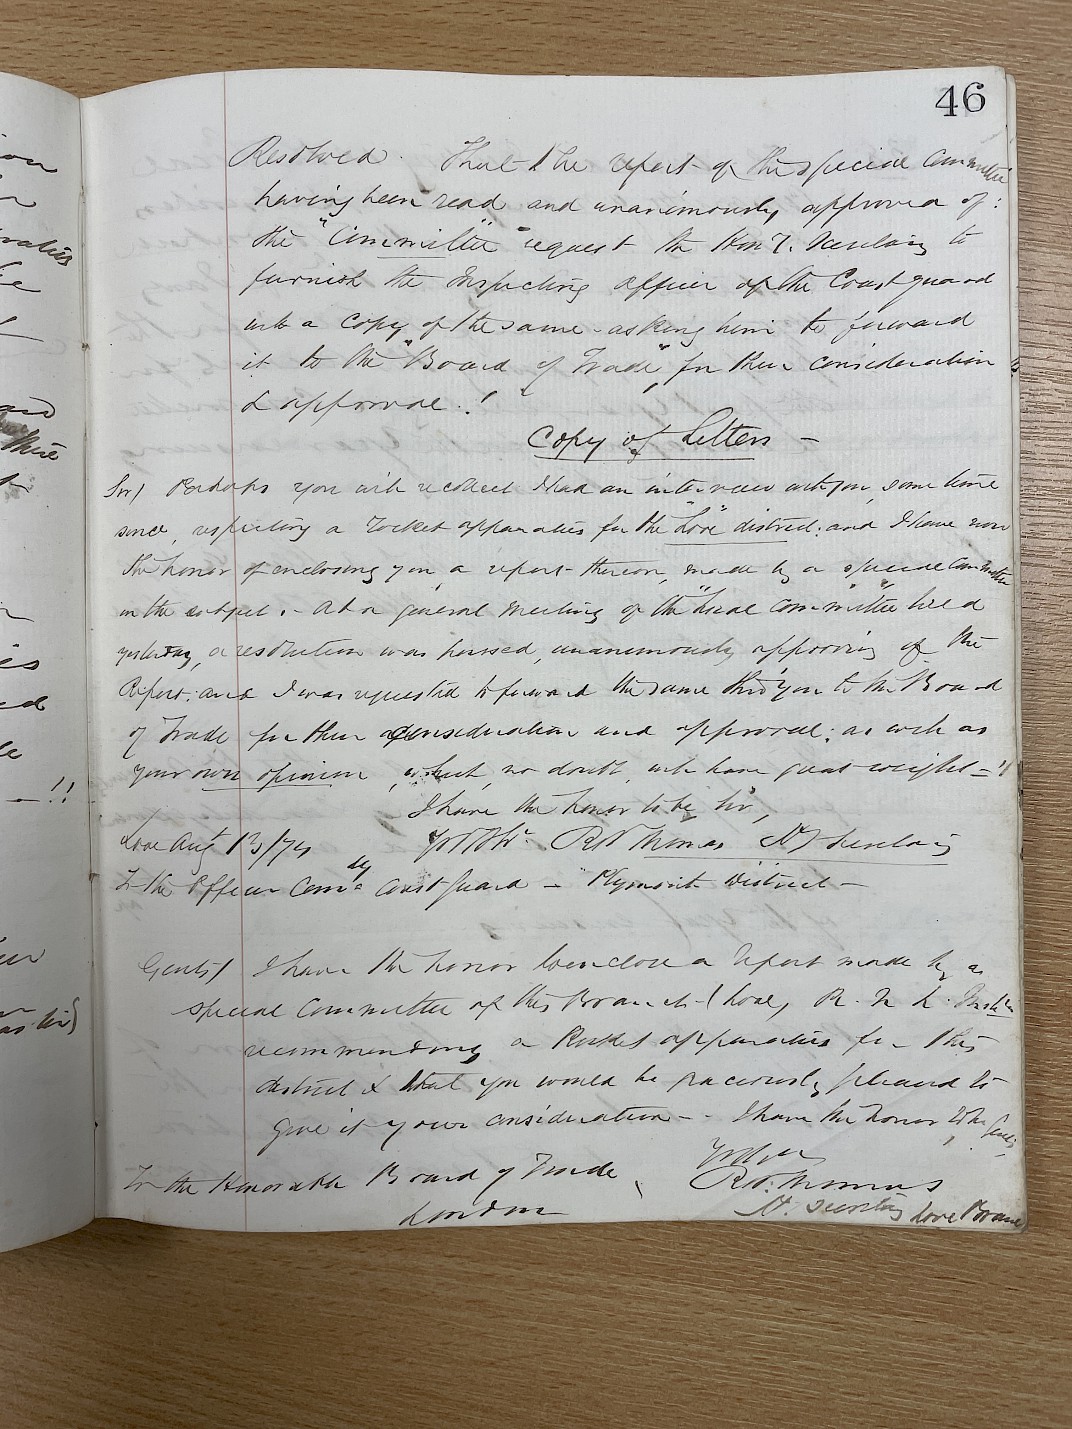 46
Resolved. That the report of the special Committee
having been read and unanimously approved of:
the "Committee" request the Hon'y. Secretary to
furnish the Inspecting officer of the Coast guard
with a copy of the same - asking him to forward
it to the "Board of Trade", for their consideration
& approval.!
Copy of Letters -
Sir/ Perhaps you will recollect I had an interview with you, some time
since, respecting a Rocket apparatus for the "Looe" district: and I have now
the honor of enclosing you, a report thereon, made by a special Committee
on the subject. - At a general meeting of the "Local Committee" held
yesterday, a resolution was passed, unanimously approving of the
Report: and I was requested to forward the same thro' you to the Board
of Trade for their consideration and approval: as well as
your own opinion, which, no doubt, will have great weight - !!
I have the honor to be Sir,
Looe Aug 13/74 R Thomas Hy Secretary
To the Officer Comdg Coast Guard - Plymouth District -
Gents/ I have the honor to enclose a report made by a
special Committee of this Branch (Looe, R. N. L. Instn
recommending a Rocket apparatus for this
district & that you would be graciously pleased to
give it your consideration - . I have the honor to be Gents,
To the Honorable Board of Trade
R. Thomas
London
H. Secretary Looe Branc